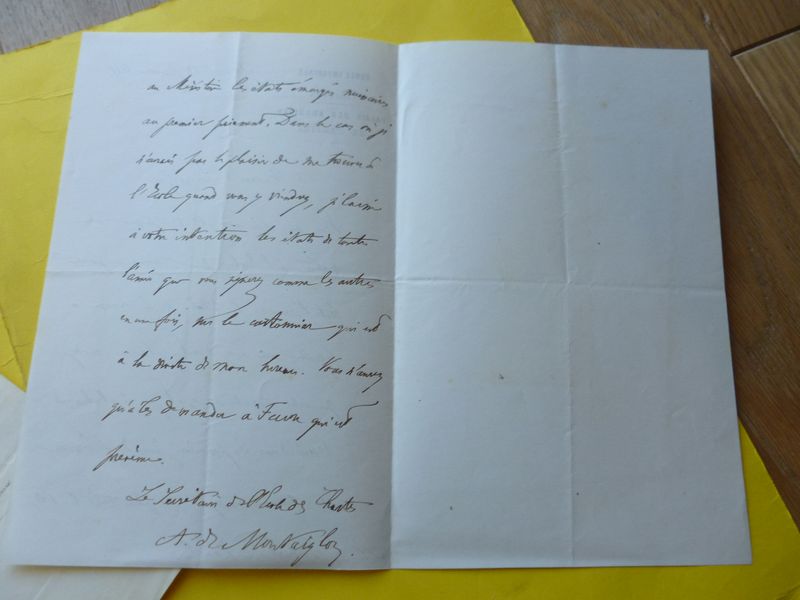 au Ministère les états émargés nécessaires
au premier paiement. Dans le cas où je
n'aurais pas le plaisir de me trouver à
l'Ecole quand vous y viendrez, je laisse
à votre intention les états de toute
l'année que vous signerez comme les autres
en une fois, sur le cartonnier qui est
à la droite de mon bureau. Vous n'aurez
qu'à les demander à qui est
prévenu.
Le Secrétaire de l'Ecole des Chartes
A. de Montaiglon